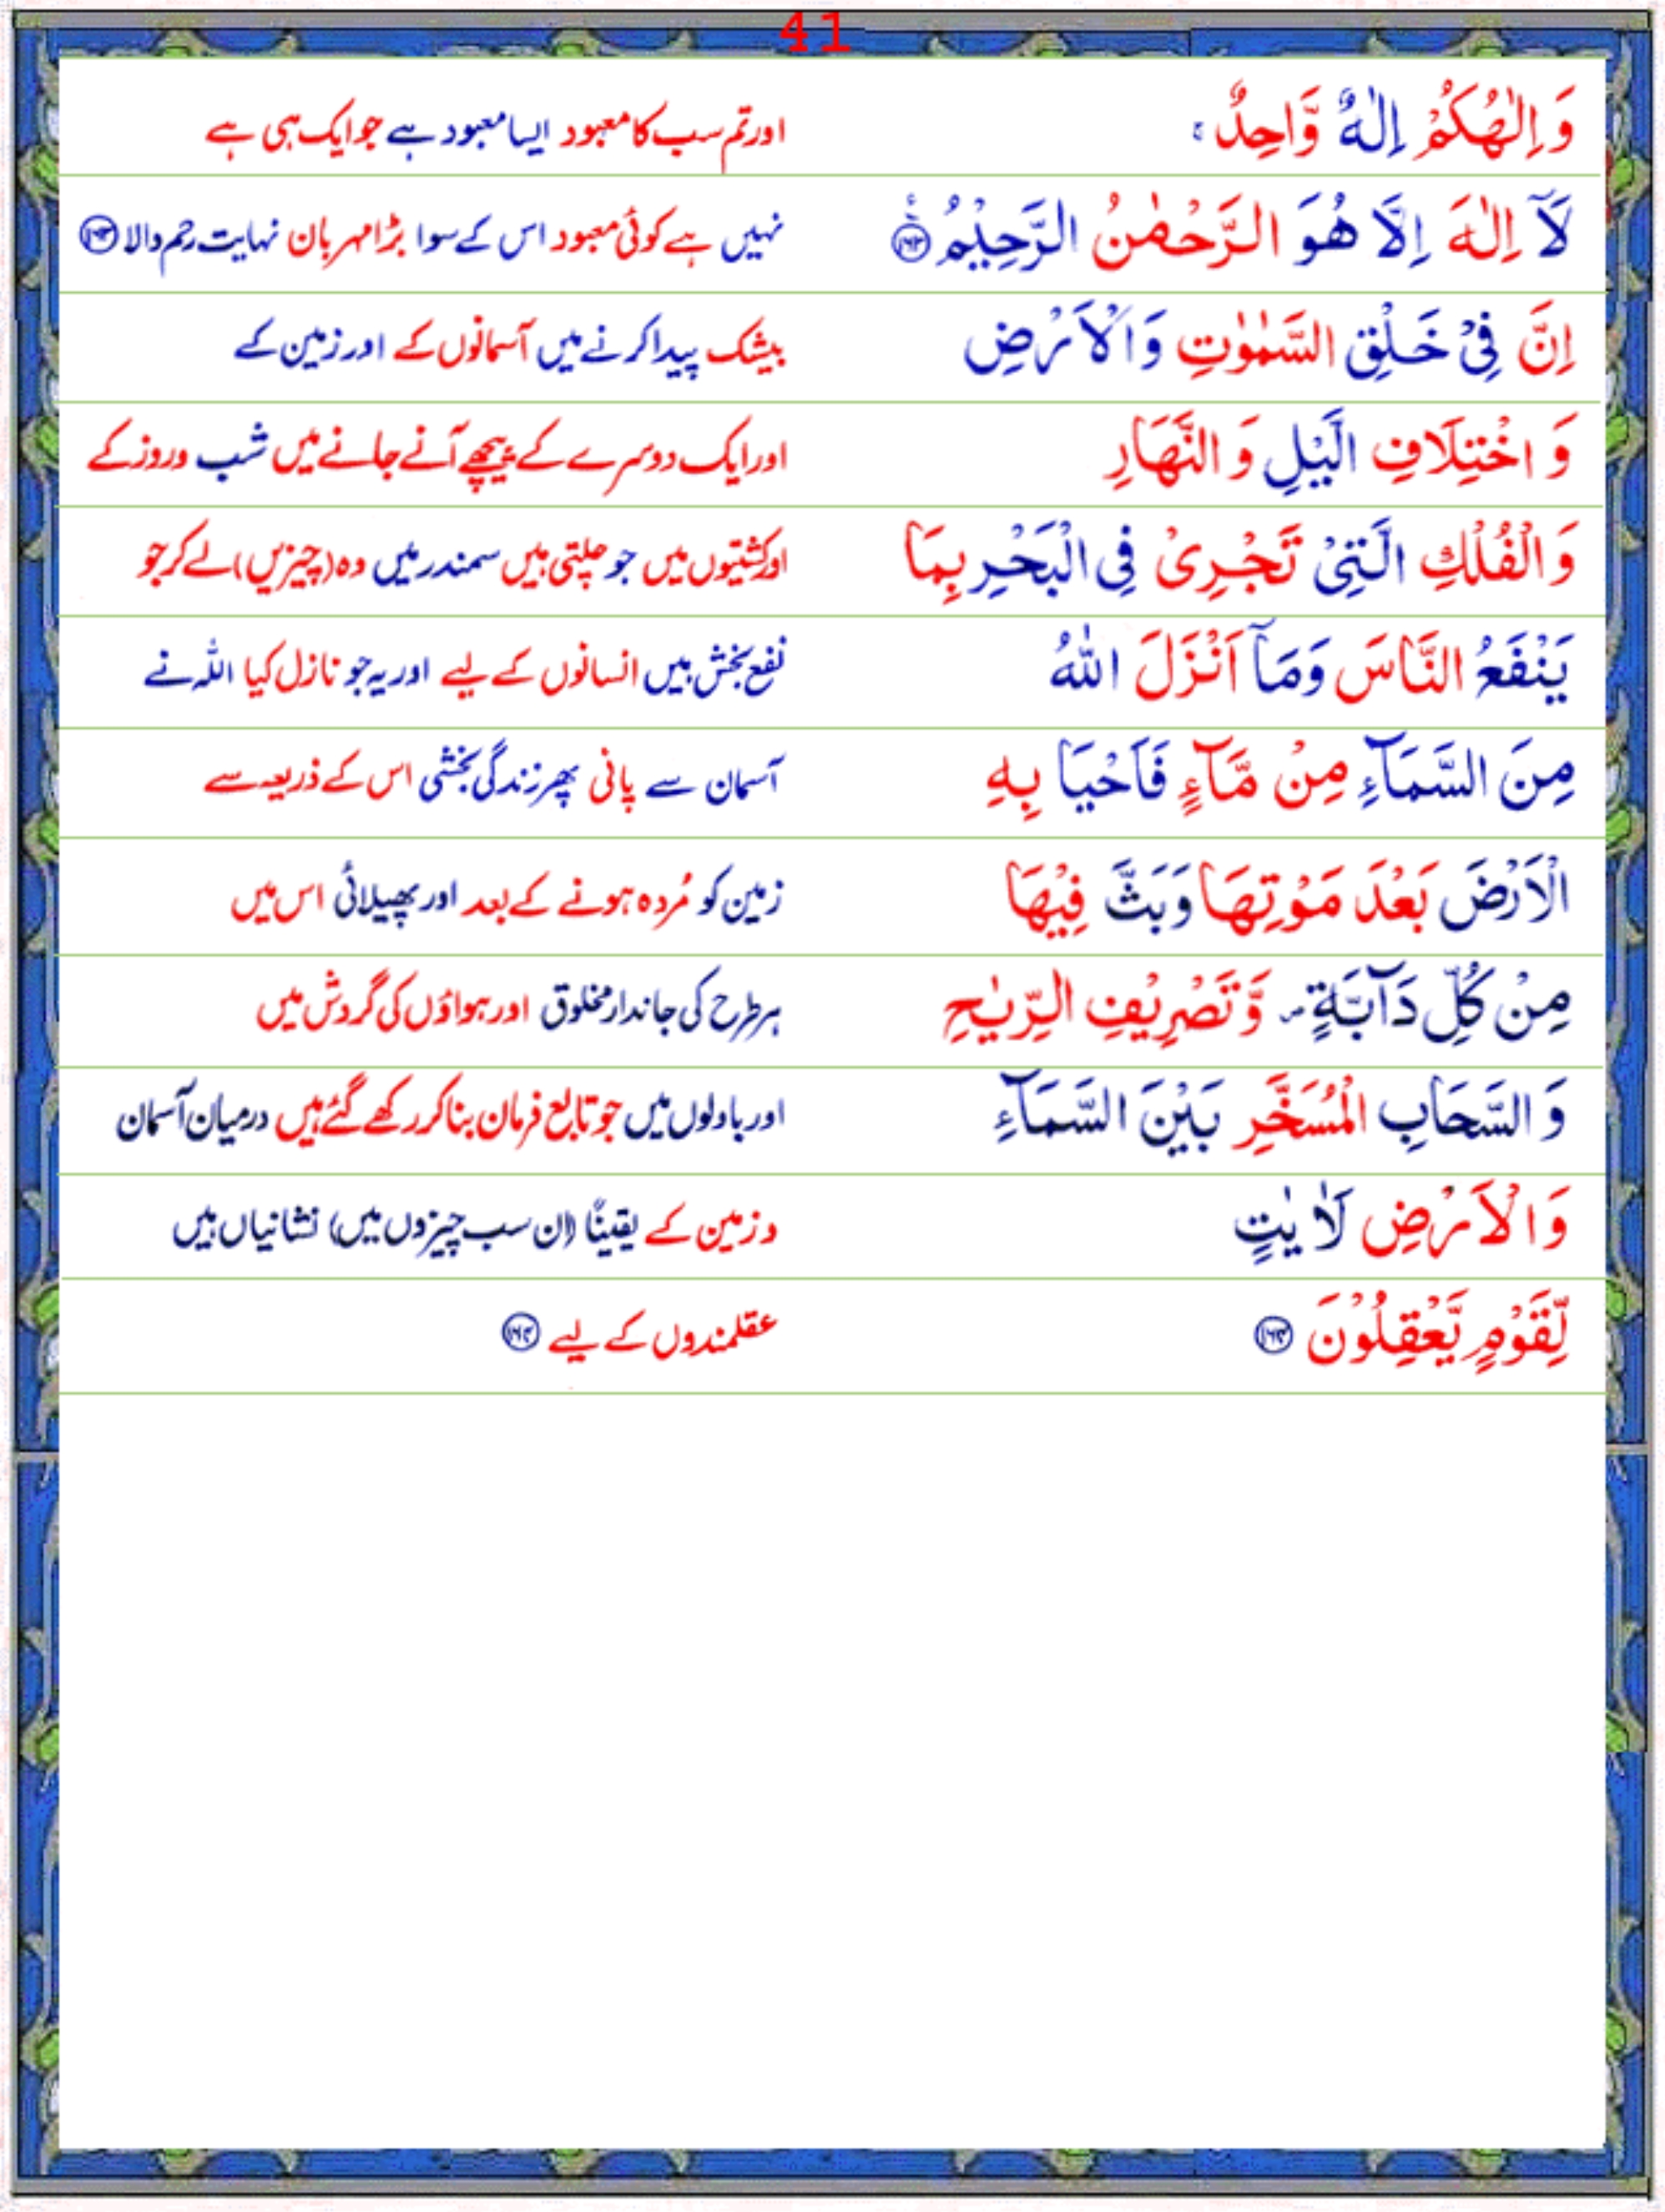 41
وَاِلٰهُكُمْ اِلٰهٌ وَّاحِدٌ ۚ اور تم سب کا معبود ایسا معبود ہے جو ایک ہی ہے
لَآ اِلٰهَ اِلَّا هُوَ الرَّحْمٰنُ الرَّحِيْمُ ۝۱۶۳ نہیں ہے کوئی معبود اس کے سوا بڑا مہربان نہایت رحم والا ۝۱۶۳
اِنَّ فِيْ خَلْقِ السَّمٰوٰتِ وَالْاَرْضِ بیشک پیدا کرنے میں آسمانوں کے اور زمین کے
وَ اخْتِلَافِ الَّيْلِ وَ النَّهَارِ اور ایک دوسرے کے پیچھے آنے جانے میں شب و روز کے
وَ الْفُلْكِ الَّتِيْ تَجْرِيْ فِي الْبَحْرِ بِمَا اور کشتیوں میں جو چلتی ہیں سمندر میں وہ (چیزیں) لے کر جو
يَنْفَعُ النَّاسَ وَمَآ اَنْزَلَ اللّٰهُ نفع بخش ہیں انسانوں کے لیے اور یہ جو نازل کیا اللہ نے
مِنَ السَّمَآءِ مِنْ مَّآءٍ فَاَحْيَا بِهِ آسمان سے پانی پھر زندگی بخشی اس کے ذریعہ سے
الْاَرْضَ بَعْدَ مَوْتِهَا وَبَثَّ فِيْهَا زمین کو مُردہ ہونے کے بعد اور پھیلائی اس میں
مِنْ كُلِّ دَآبَّةٍ ۪ وَّ تَصْرِيْفِ الرِّيٰحِ ہر طرح کی جاندار مخلوق اور ہواؤں کی گردش میں
وَ السَّحَابِ الْمُسَخَّرِ بَيْنَ السَّمَآءِ اور بادلوں میں جو تابع فرمان بنا کر رکھے گئے ہیں درمیان آسمان
وَ الْاَرْضِ لَاٰيٰتٍ و زمین کے یقیناً (ان سب چیزوں میں) نشانیاں ہیں
لِّقَوْمٍ يَّعْقِلُوْنَ ۝۱۶۴ عقلمندوں کے لیے ۝۱۶۴